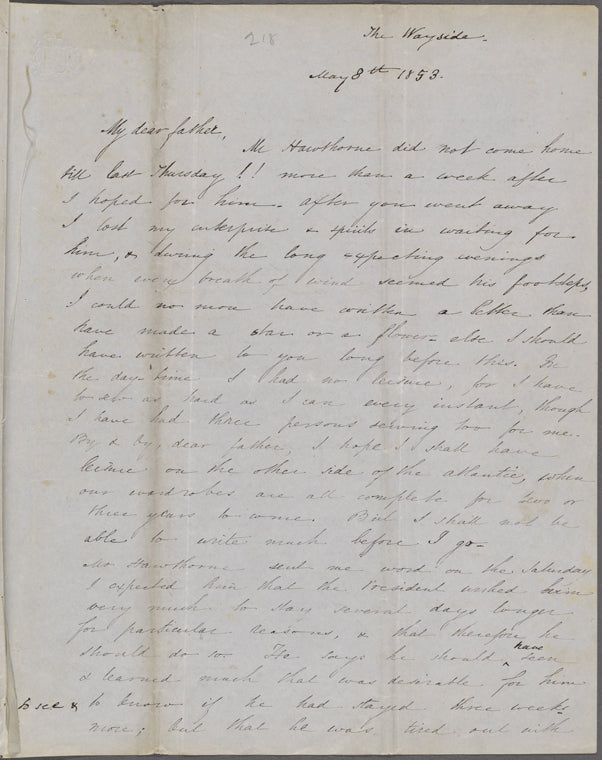 218
The Wayside.
May 8th 1853.
My dear father,
Mr Hawthorne did not come home
till last Thursday!! more than a week after
I hoped for him. After you went away
I lost my enterprise & spirits in waiting for
him, & during the long expecting evenings
when every breath of wind seemed his footsteps,
I could no more have written a letter than
have made a star or a flower - else I should
have written to you long before this. In
the day time I had no leisure, for I have
to sew as hard as I can every instant, though
I have had three persons sewing too for me.
By & by, dear father, I hope I shall have
leisure on the other side of the atlantic, when
our wardrobes are all complete for two or
three years to come. But I shall not be
able to write much before I go -
Mr Hawthorne sent me word on the Saturday
I expected him that the President wished him
very much to stay several days longer
for particular reasons, & that therefore he
should do so. He says he should ^have seen
& learned much that was desirable for him
to see & to know if he had stayed three weeks
more; but that he was tired out with